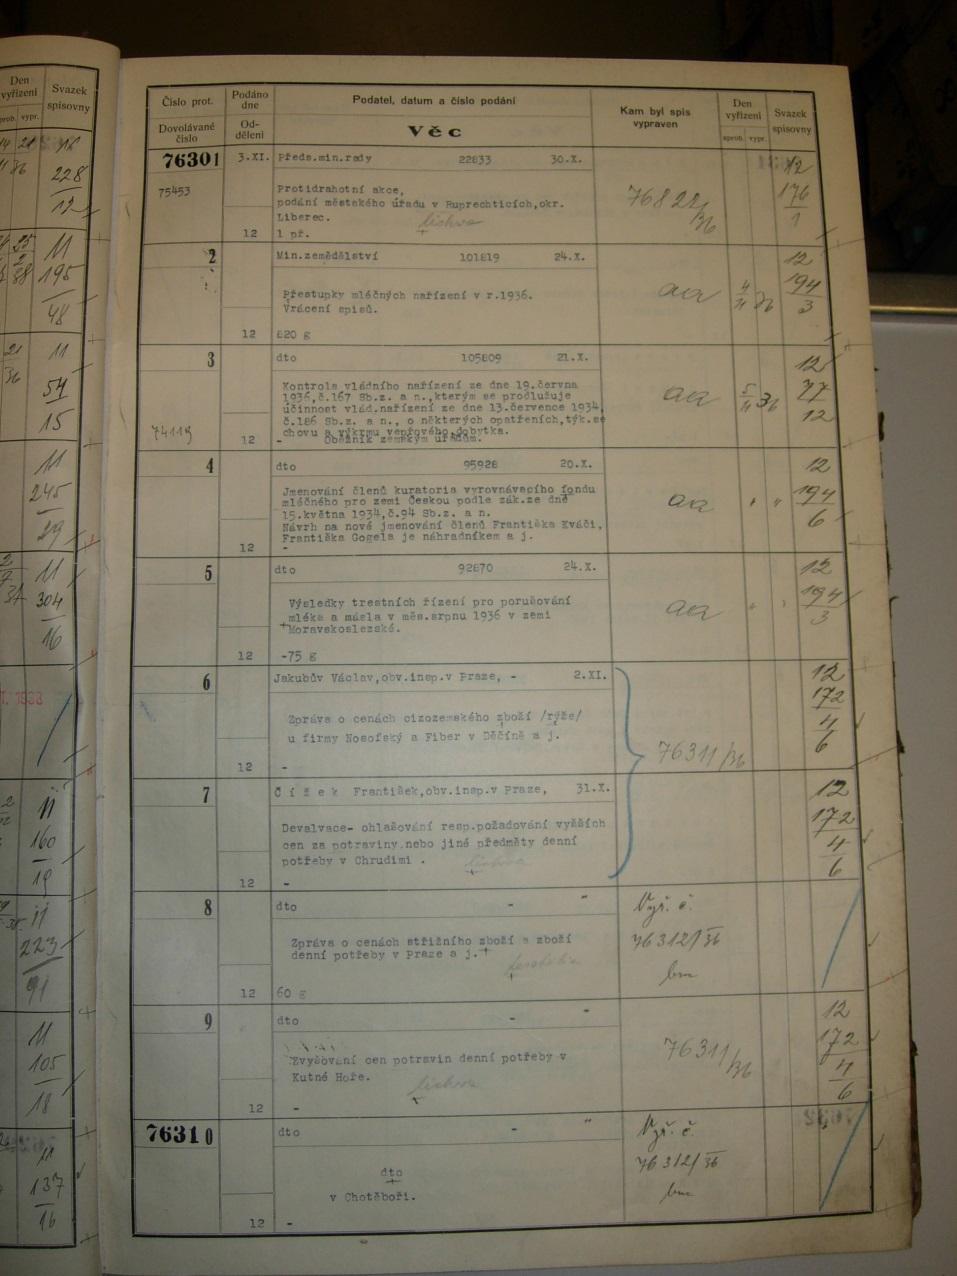 Den
vyřízení
Svazek
spisovny
aprob. vypr.
228
12
11
195
48
11
54
15
11
245
29
11
304
16
11
160
19
11
223
91
11
105
18
11
137
16
Číslo prot.
Podáno
dne
Podatel, datum a číslo podání
Kam byl spis
vypraven
Den
vyřízení
Svazek
spisovny
Dovolávané
číslo
Od-
dělení
Věc
aprob. vypr.
76301 3.XI. Předs.min.rady 22833 30.X. 12
75453 Protidrahotní akce, 176
podání městského úřadu v Ruprechticích,okr. 76822/36 1
Liberec. lichva
12 1 př.
2 Min.zemědělství 101819 24.X. 12
Přestupky mléčných nařízení v r.1936. aa 4/11 36 194
Vrácení spisů. 3
12 820 g
3 dto 105809 21.X. 12
Kontrola vládního nařízení ze dne 19.června aa 5/11 36 77
1936,č.167 Sb.z. a n.,kterým se prodlužuje 12
účinnost vlád.nařízení ze dne 13.července 1934,
č.186 Sb.z. a n., o některých opatřeních,týk.se
74119 chovu a výkrmu vepřového dobytka.
12 - Oběžník zemským úřadům.
4 dto 95928 20.X. 12
Jmenování členů kuratoria vyrovnávacího fondu aa " " 194
mléčného pro zemi Českou podle zák.ze dne 6
15.května 1934,č.94 Sb.z. a n.
Návrh na nové jmenování členů Františka Kváči,
Františka Gogela je náhradníkem a j.
12 -
5 dto 92870 24.X. 12
Výsledky trestních řízení pro porušování aa " " 194
mléka a másla v měs.srpnu 1936 v zemi 3
Moravskoslezské.
12 -75 g
6 Jakubův Václav,obv.insp.v Praze, - 2.XI. 12
172
Zpráva o cenách cizozemského zboží /rýže/ 4
u firmy Nosofský a Fiber v Děčíně a j. 6
12 - 76311/36
7 Čížek František,obv.insp.v Praze, 31.X. 12
172
Devalvace- ohlašování resp.požadování vyšších 4
cen za potraviny nebo jiné předměty denní 6
potřeby v Chrudimi . lichva
12 -
8 dto - " Vyř. č.
Zpráva o cenách střižního zboží a zboží 76312/36
denní potřeby v Praze a j.
12 60 g
9 dto - " 12
172
Zvyšování cen potravin denní potřeby v 76311/36 4
Kutné Hoře. lichva 6
12 -
76310 dto - " Vyř. č.
76312/36
dto
v Chotěboři.
12 -